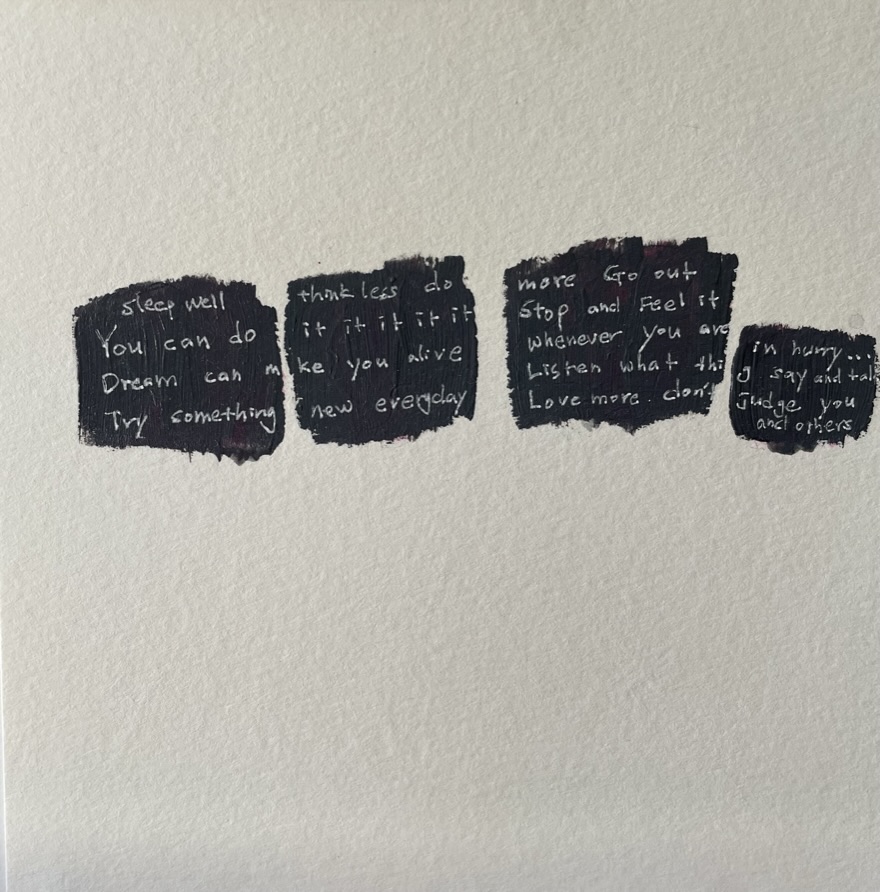 sleep well think less do more Go out
You can do it it it it it Stop and Feel it in hurry...
Dream can make you alive whenever you are I say and
Try something new everyday Listen what Judge you
Love more. don't and others